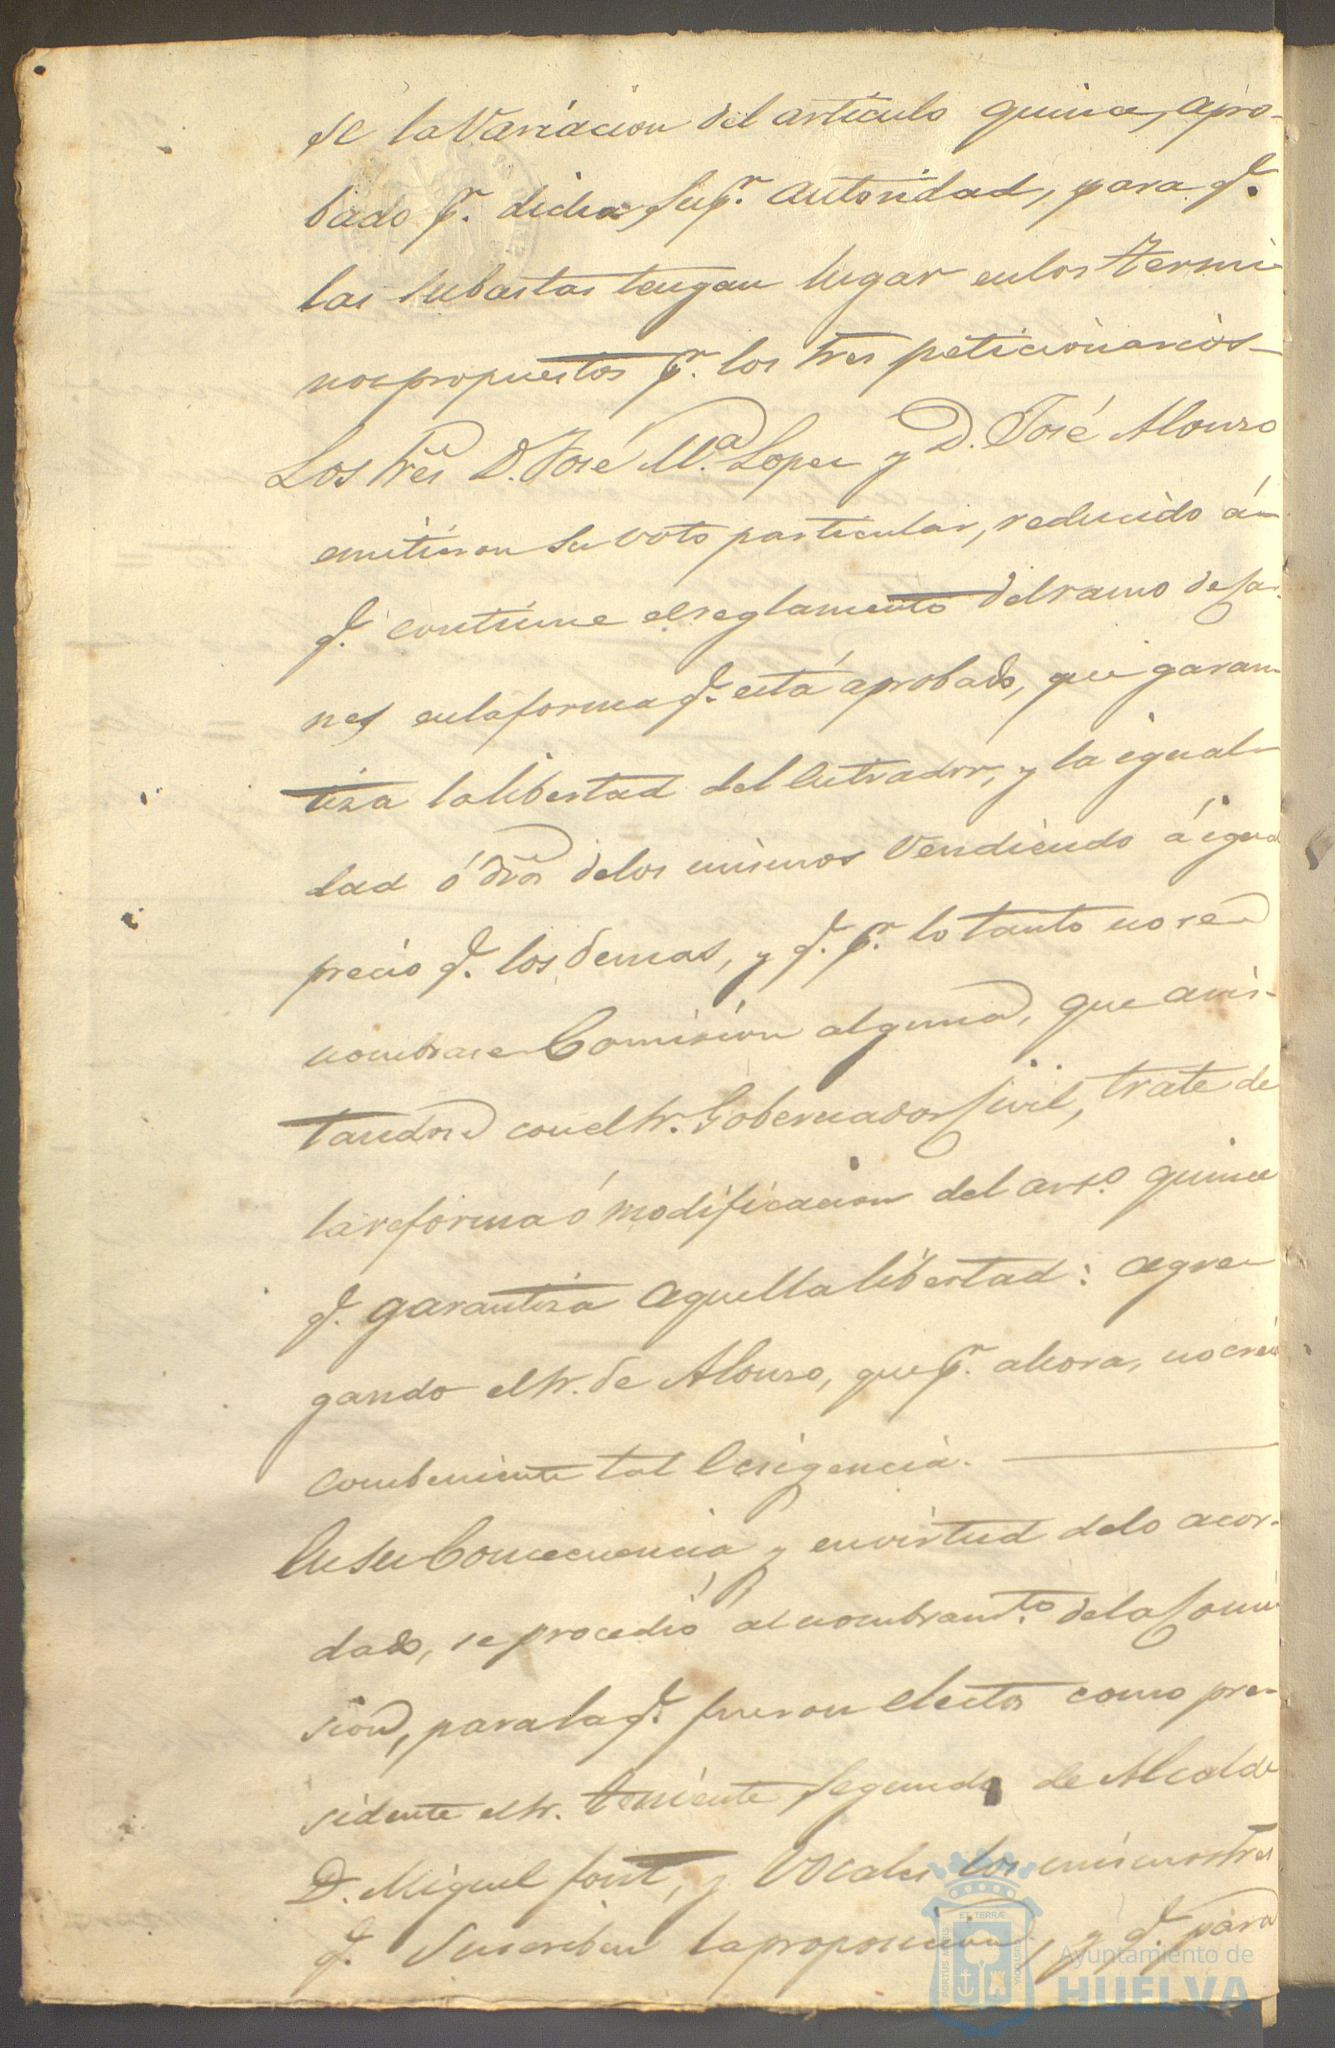 se la Variacion del articulo quince, apro-
bado pr. dicha Supr. autoridad, para qe.
las subastas tengan lugar enlos termi-
nos propuestos pr. los tres peticionarios-
Los Sres. D. José Ma. Lopez y D. José Alonso
emitieron su voto particular, reducido á
qe. continue elreglamento delramo de Car-
nes enlaforma qe. está aprobado, que garan-
tiza lalibertad del entrador, y la igual-
dad ó dros delos mismos vendiendo á igual
precio qe. los demas, y qe. pr. lo tanto no se
nombrase Comision alguna, que avis-
tandose conel Sr. Gobernador Civil, trate de
lareforma ó modificacion del arto. quince
qe. garantiza aquella libertad: agre-
gando el Sr. de Alonso, que pr. ahora, no creia
combeniente tal Exigencia.
Ensu Consecuencia y envirtud delo acor-
dado, se procedió al nombramto. dela Comi-
sion, parala qe. fueron electos como pre-
sidente el Sr. teniente Segundo de Alcalde
D. Miguel font, y Vocales los mismos tres
qe. Suscriben laproposicion, y qe. para
Ayuntamiento de
HUELVA
PORTUS MARIS
ET TERRÆ